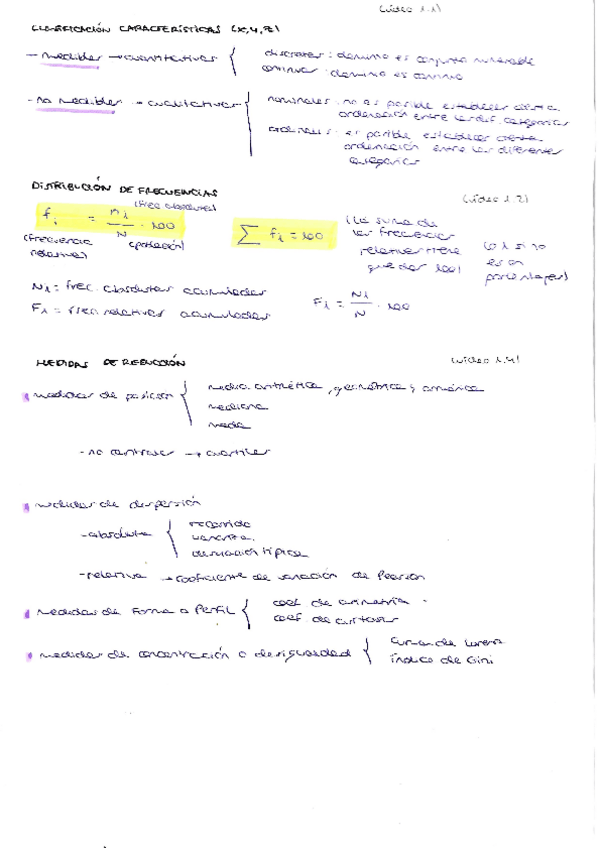 (vídeo 1.1)
CLASIFICACIÓN CARACTERÍSTICAS (X,Y,Z)
- medibles → cuantitativas { discretas: dominio es conjunto numerable
continuas: dominio es continuo
- no medibles → cualitativas { nominales: no es posible establecer cierta
ordenación entre las dif. categorías
ordinales: es posible establecer cierta
ordenación entre las diferentes
categorías
DISTRIBUCIÓN DE FRECUENCIAS (vídeo 1.2)
(frec absolutas)
fi = ni / N · 100
(frecuencia relativa) (población)
∑ fi = 100
(La suma de
las frecuencias
relativas tiene
que dar 100)
(o 1 si no
es en
porcentajes)
Ni = frec. absolutas acumuladas
Fi = frec. relativas acumuladas
Fi = Ni / N · 100
MEDIDAS DE REDUCCIÓN (vídeo 1.4)
medidas de posición { media aritmética, geométrica y armónica
mediana
moda
- no centrales → cuartiles
medidas de dispersión
- absoluta { recorrido
varianza
desviación típica
- relativa → coeficiente de variación de Pearson
medidas de forma o perfil { coef. de asimetría
coef. de curtosis
medidas de concentración o desigualdad { curva de Lorenz
índice de Gini